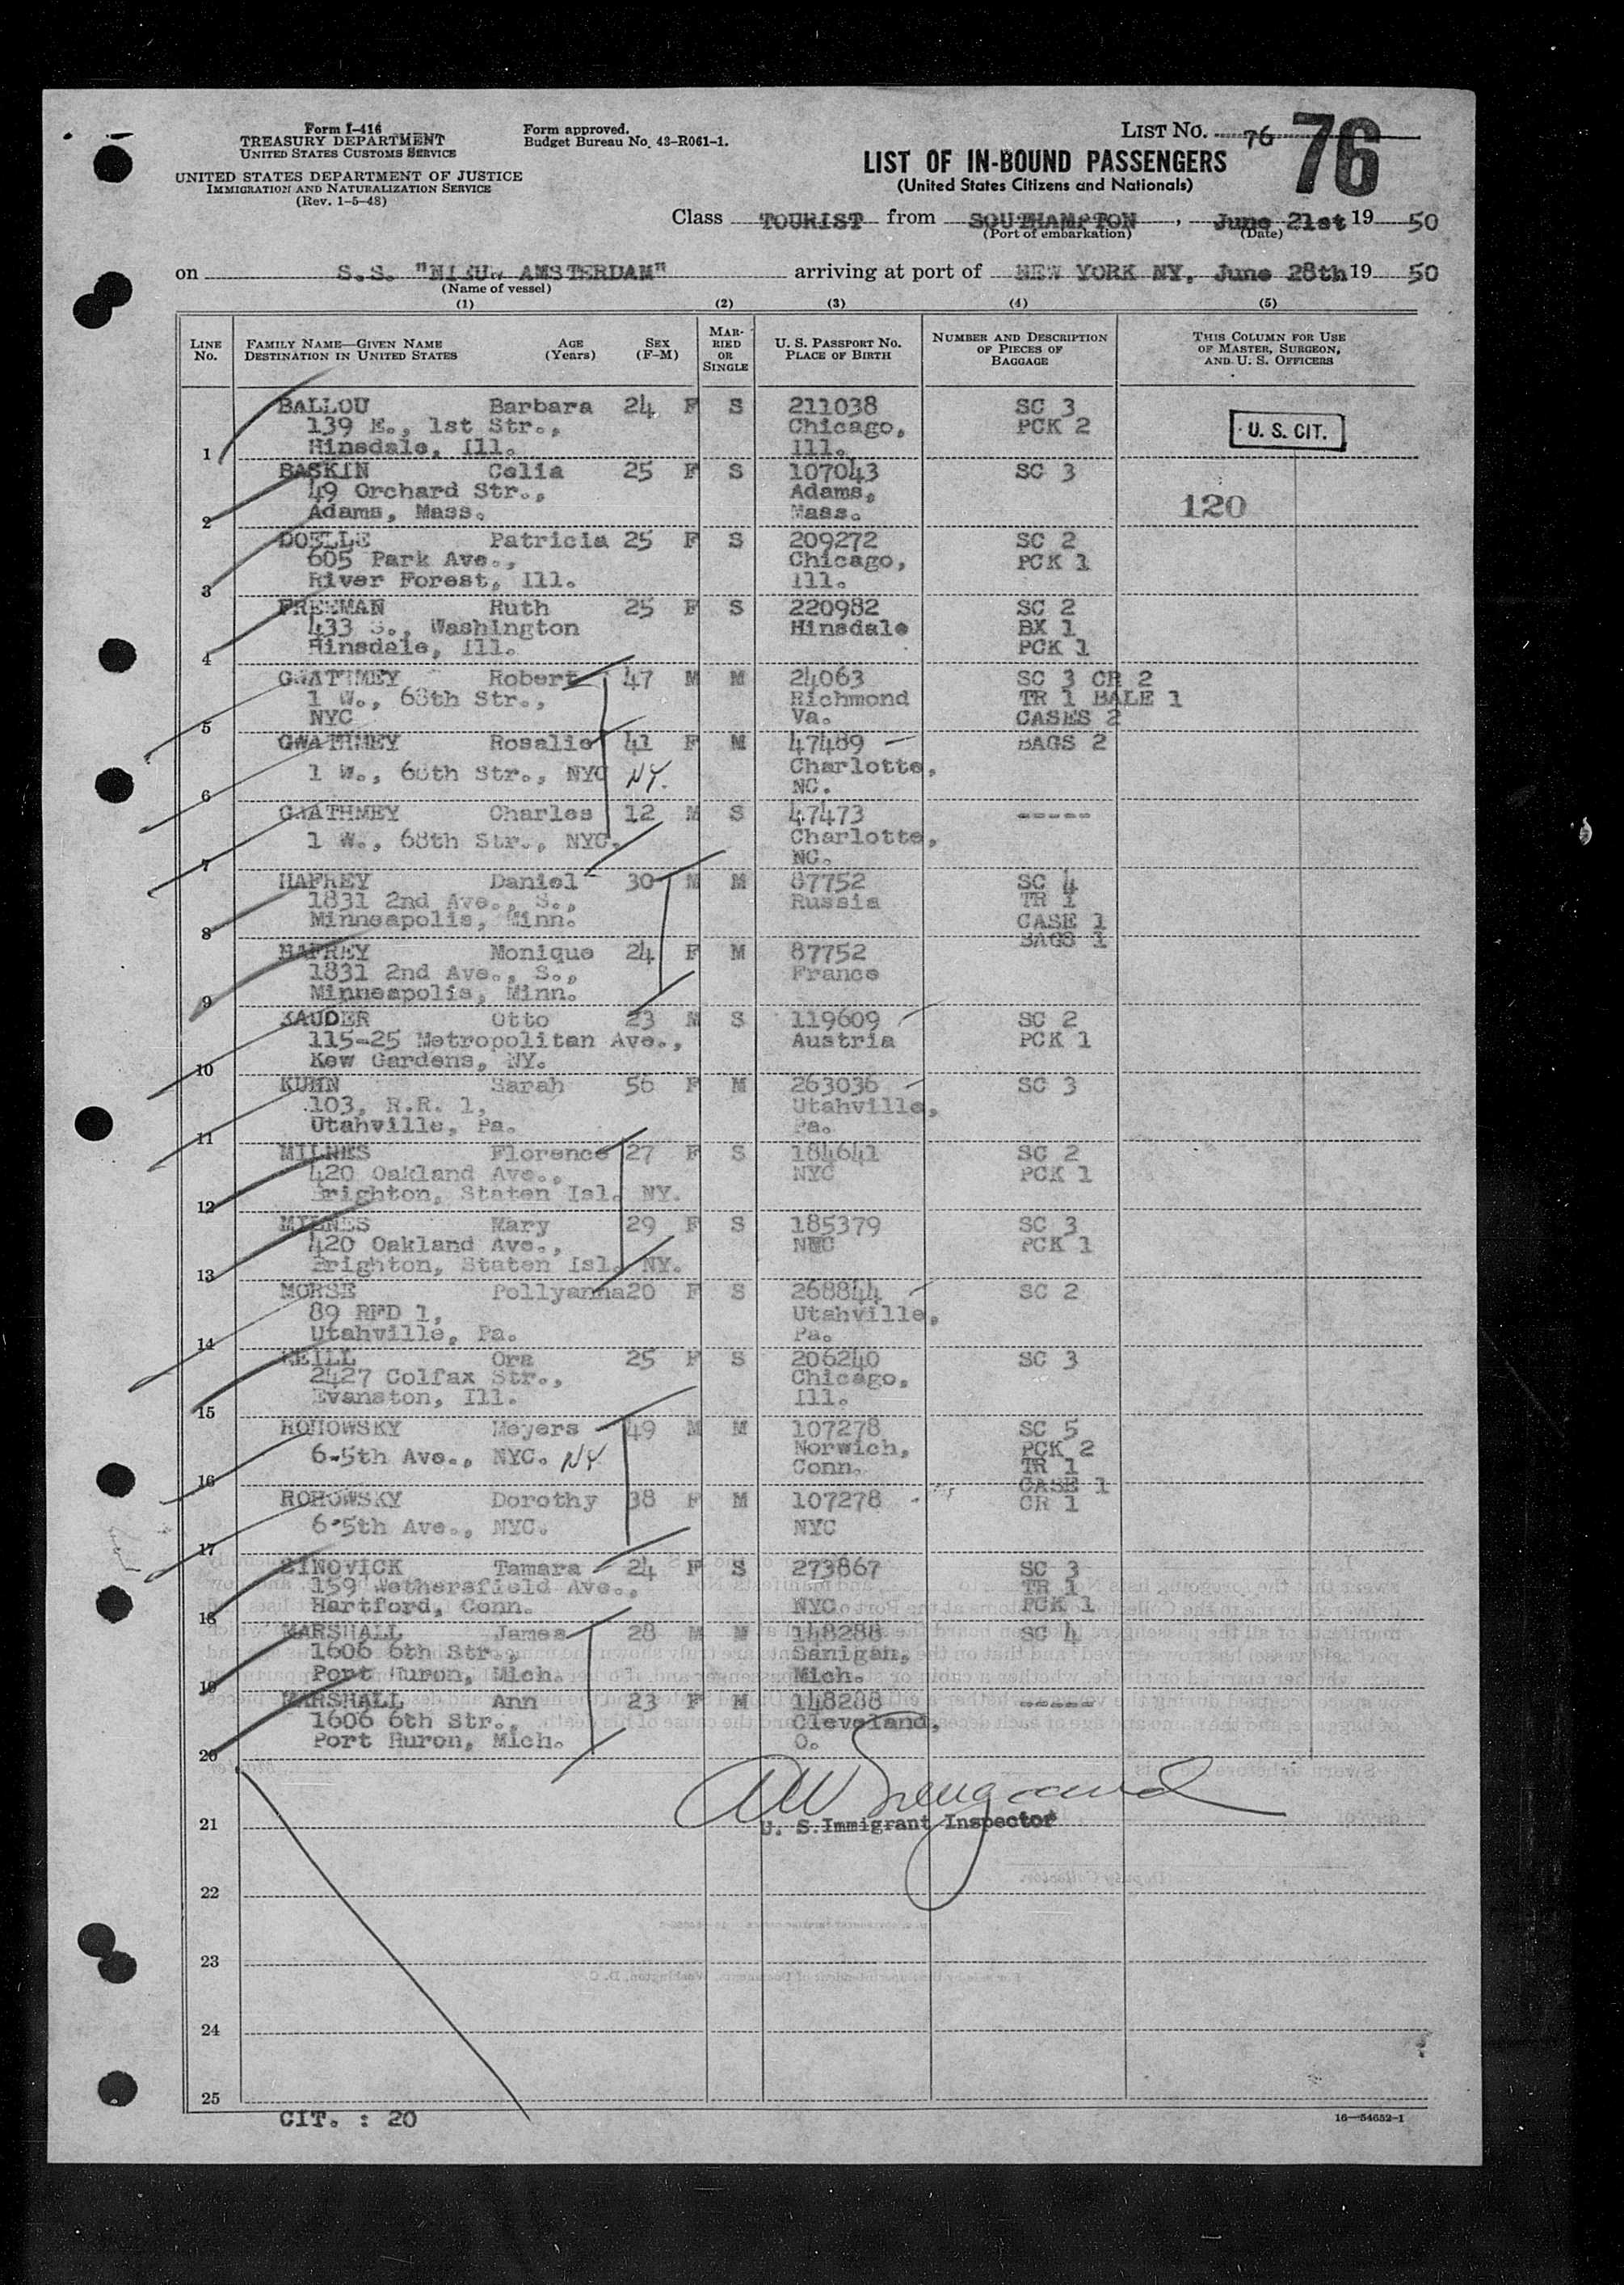 Form I-416
TREASURY DEPARTMENT
UNITED STATES CUSTOMS SERVICE
UNITED STATES DEPARTMENT OF JUSTICE
IMMIGRATION AND NATURALIZATION SERVICE
(Rev. 1-5-48)
Form approved.
Budget Bureau No. 43-R061-1.
LIST NO. 76 76
LIST OF IN-BOUND PASSENGERS
(United States Citizens and Nationals)
Class TOURIST from SOUTHAMPTON, June 21st 19 50
(Port of embarkation) (Date)
on S.S. "NIEUW AMSTERDAM" arriving at port of NEW YORK NY, June 28th 19 50
(Name of vessel)
(1) (2) (3) (4) (5)
LINE No.
FAMILY NAME—GIVEN NAME AGE SEX
DESTINATION IN UNITED STATES (Years) (F-M)
MARRIED OR SINGLE
U. S. PASSPORT NO.
PLACE OF BIRTH
NUMBER AND DESCRIPTION
OF PIECES OF
BAGGAGE
THIS COLUMN FOR USE
OF MASTER, SURGEON,
AND U. S. OFFICERS
BALLOU Barbara 24 F S 211038 SC 3
139 E., 1st Str., Chicago, PCK 2 U. S. CIT.
1 Hinsdale, Ill. Ill.
BASKIN Celia 25 F S 107043 SC 3
49 Orchard Str., Adams,
2 Adams, Mass. Mass. 120
DOELLE Patricia 25 F S 209272 SC 2
605 Park Ave., Chicago, PCK 1
3 River Forest, Ill. Ill.
FREEMAN Ruth 25 F S 220982 SC 2
433 S., Washington Hinsdale BX 1
4 Hinsdale, Ill. PCK 1
GWATHMEY Robert 47 M M 24063 SC 3 CR 2
1 W., 68th Str., Richmond TR 1 BALE 1
5 NYC Va. CASES 2
GWATHMEY Rosalie 41 F M 47489 BAGS 2
1 W., 68th Str., NYC NY. Charlotte,
6 NC.
GWATHMEY Charles 12 M S 47473 -----
1 W., 68th Str., NYC. Charlotte,
7 NC.
HAFREY Daniel 30 M M 87752 SC 4
1831 2nd Ave., S., Russia TR 1
8 Minneapolis, Minn. CASE 1
BAGS 1
HAFREY Monique 24 F M 87752
1831 2nd Ave., S., France
9 Minneapolis, Minn.
KAUDER Otto 23 M S 119609 SC 2
115-25 Metropolitan Ave., Austria PCK 1
10 Kew Gardens, NY.
KUHN Sarah 56 F M 263036 SC 3
103, R.R. 1, Utahville,
11 Utahville, Pa. Pa.
MILNES Florence 27 F S 184641 SC 2
420 Oakland Ave., NYC PCK 1
12 Brighton, Staten Isl. NY.
MILNES Mary 29 F S 185379 SC 3
420 Oakland Ave., NYC PCK 1
13 Brighton, Staten Isl. NY.
MORSE Pollyanna 20 F S 268844 SC 2
89 RFD 1, Utahville,
14 Utahville, Pa. Pa.
Ora 25 F S 206240 SC 3
2427 Colfax Str., Chicago,
15 Evanston, Ill. Ill.
ROHOWSKY Meyers 49 M M 107278 SC 5
6-5th Ave., NYC. NY Norwich, PCK 2
16 Conn. TR 1
CASE 1
ROHOWSKY Dorothy 38 F M 107278 CR 1
6-5th Ave., NYC. NYC
17
ZINOVICK Tamara 24 F S 273867 SC 3
159 Wethersfield Ave., TR 1
18 Hartford, Conn. NYC PCK 1
MARSHALL James 28 M M 148288 SC 4
1606 6th Str., Sanigan,
19 Port Huron, Mich. Mich.
MARSHALL Ann 23 F M 148288 -----
1606 6th Str., Cleveland,
20 Port Huron, Mich. O.
21 U. S. Immigrant Inspector
22
23
24
25
CIT. : 20
16—54652-1